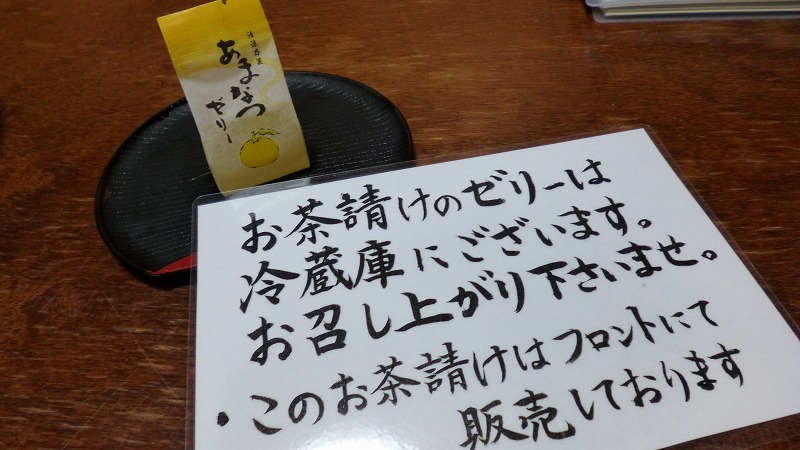 あまなつ
ゼリー
お茶請けのゼリーは
冷蔵庫にございます。
お召し上がり下さいませ。
・このお茶請けはフロントにて
販売しております